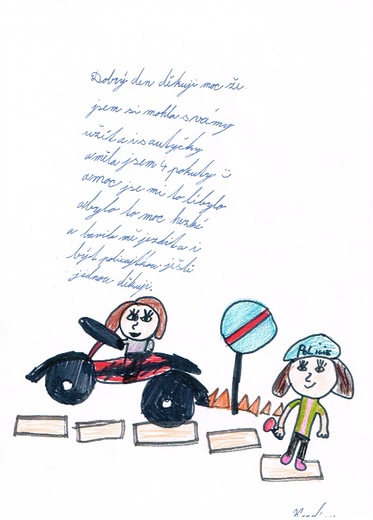 Dobrý den děkuji moc že
jsem si mohla s vámy
užít a is autýčky
a měla jsem 4 pokuty
a moc jse mi to líbylo
a bylo to moc hezké
a bavilo mě jezdit a i
být policajtkou ještě
jednou děkuji.